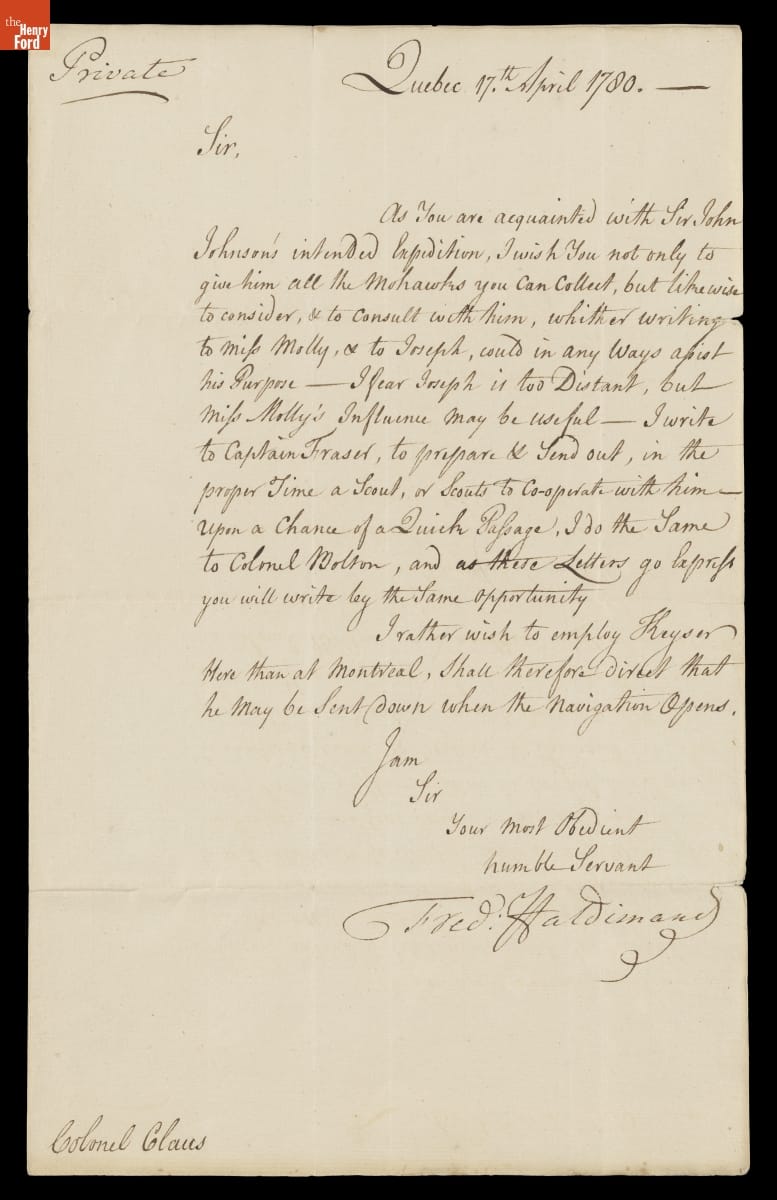 the
Henry
Ford
Private
Quebec 17.th April 1780. —
Sir,
As You are acquainted with Sir John
Johnson's intended Expedition, I wish You not only to
give him all the Mohawks you Can Collect, but likewise
to consider, & to Consult with him, whither writing
to Miss Molly, & to Joseph, could in any Ways assist
his Purpose — I fear Joseph is too Distant, but
Miss Molly's Influence may be useful — I write
to Captain Fraser, to prepare & Send out, in the
proper Time a Scout, or Scouts to Co-operate with him —
upon a Chance of a Quick Passage, I do the Same
to Colonel Bolton, and as these Letters go Express
you will write by the Same opportunity
I rather wish to employ Keyser
Here than at Montreal, Shall therefore direct that
he May be Sent down when the Navigation Opens.
I am
Sir
Your Most Obedient
humble Servant
Fred: Haldimand
Colonel Claus